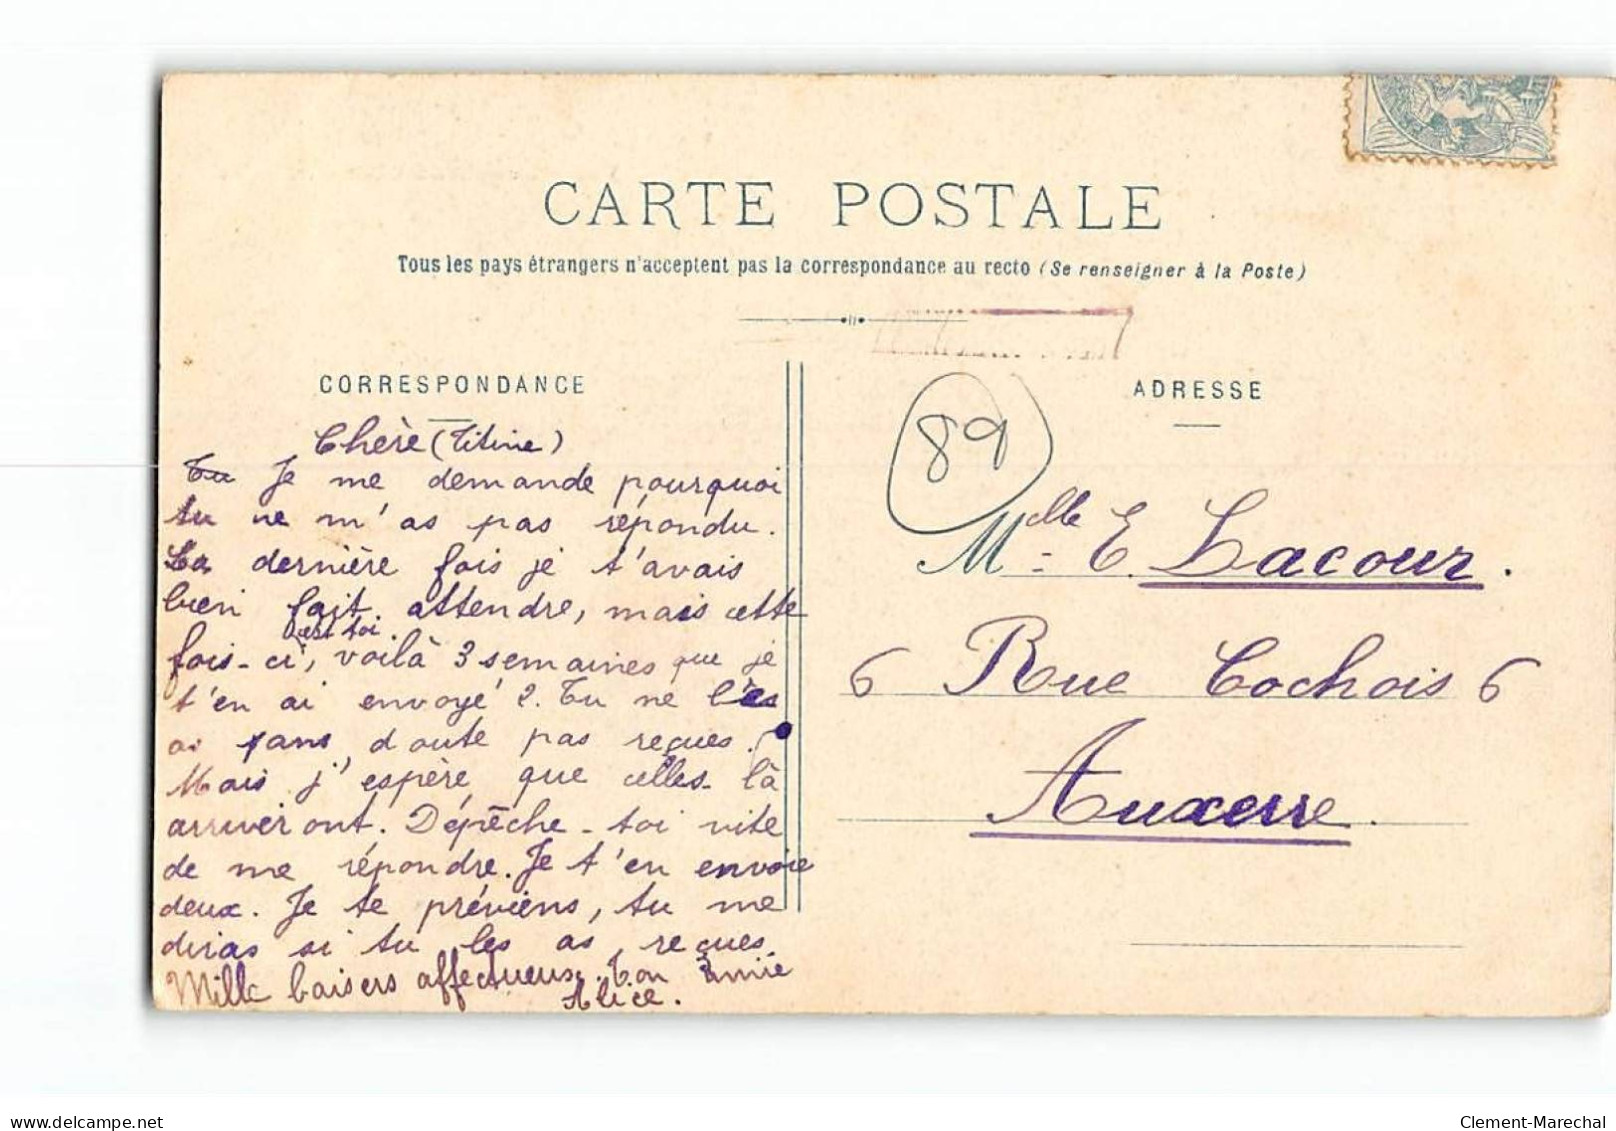 CARTE POSTALE
Tous les pays étrangers n'acceptent pas la correspondance au recto (Se renseigner à la Poste)
CORRESPONDANCE
ADRESSE
89
Chère (Titine)
Tu Je me demande pourquoi
tu ne m'as pas répondu.
La dernière fois je t'avais
bien fait attendre, mais cette
c'est toi.
fois-ci, voilà 3 semaines que je
t'en ai envoyé 2. Tu ne les
as sans doute pas reçues.
Mais j'espère que celles-là
arriveront. Dépêche-toi vite
de me répondre. Je t'en envoie
deux. Je te préviens, tu me
diras si tu les as reçues.
Mille baisers affectueux. Ton amie
Alice.
Melle E. Lacour.
6 Rue Cochois 6
Auxerre.
delcampe.net
Clement-Marechal